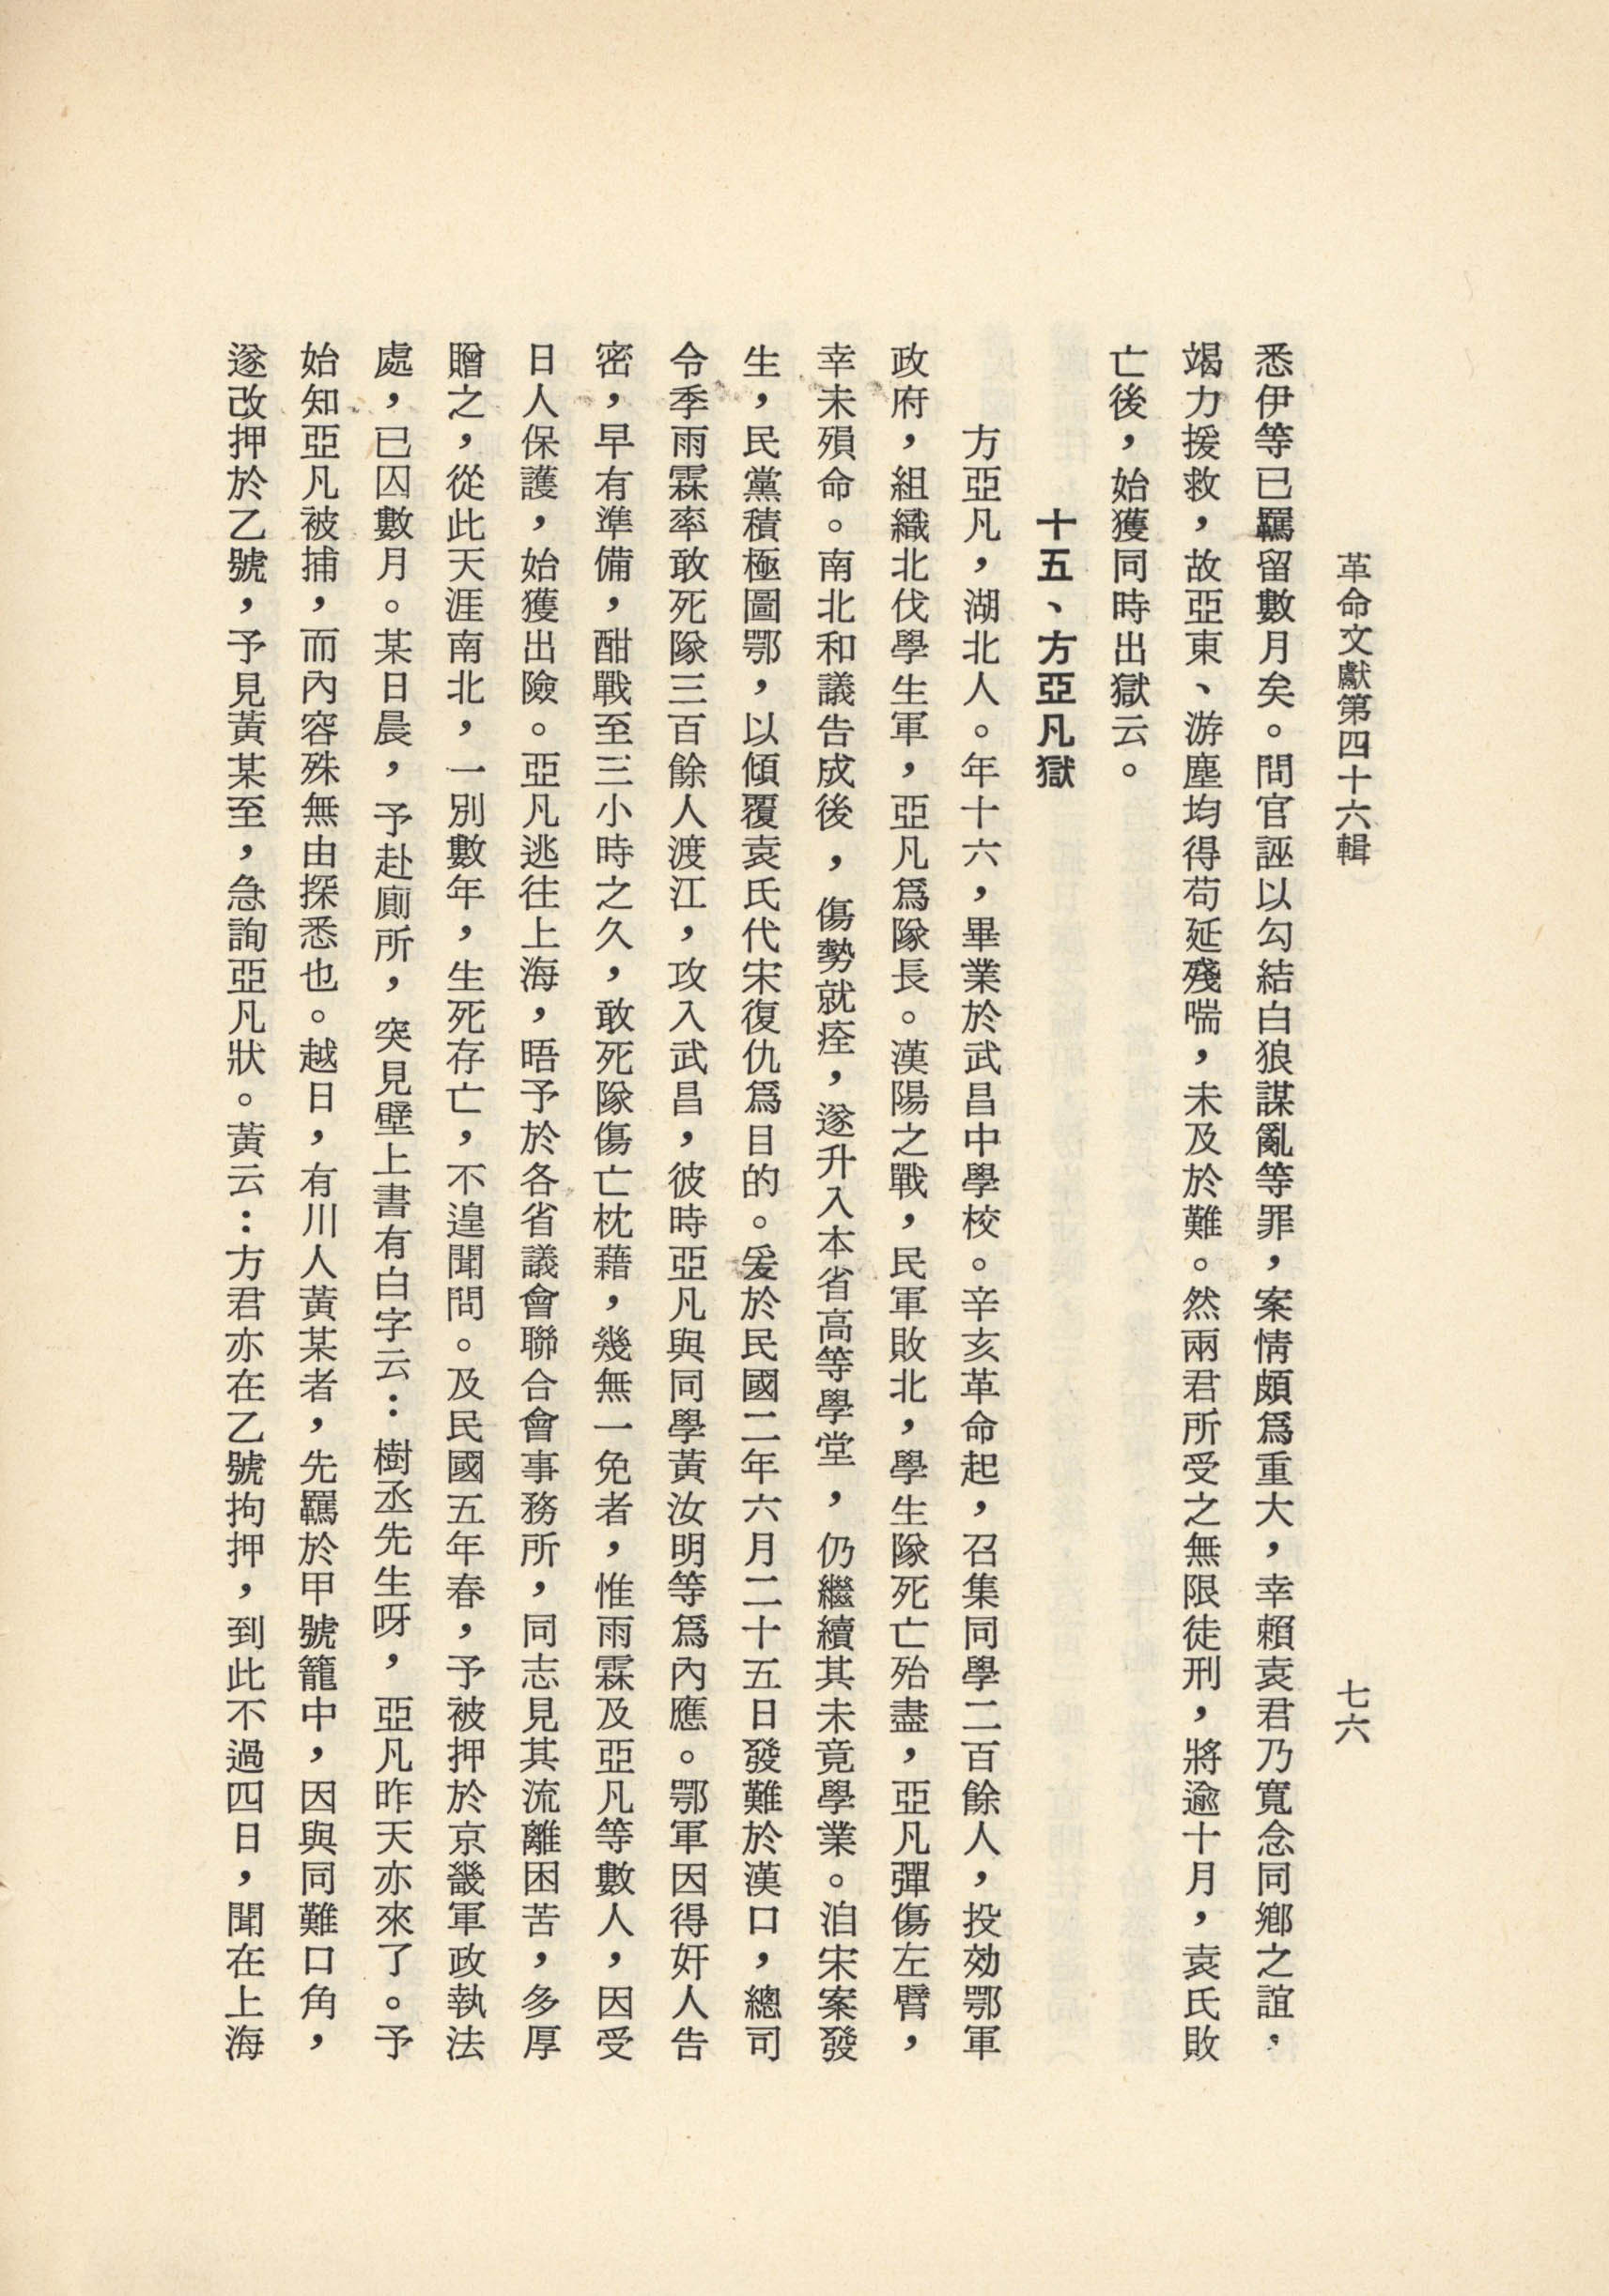 革命文獻第四十六輯
七六
悉伊等已羈留數月矣。問官誣以勾結白狼謀亂等罪，案情頗爲重大，幸賴袁君乃寬念同鄉之誼，
竭力援救，故亞東、游塵均得苟延殘喘，未及於難。然兩君所受之無限徒刑，將逾十月，袁氏敗
亡後，始獲同時出獄云。
十五、方亞凡獄
方亞凡，湖北人。年十六，畢業於武昌中學校。辛亥革命起，召集同學二百餘人，投効鄂軍
政府，組織北伐學生軍，亞凡爲隊長。漢陽之戰，民軍敗北，學生隊死亡殆盡，亞凡彈傷左臂，
幸未殞命。南北和議告成後，傷勢就痊，遂升入本省高等學堂，仍繼續其未竟學業。洎宋案發
生，民黨積極圖鄂，以傾覆袁氏代宋復仇爲目的。爰於民國二年六月二十五日發難於漢口，總司
令季雨霖率敢死隊三百餘人渡江，攻入武昌，彼時亞凡與同學黃汝明等爲內應。鄂軍因得奸人告
密，早有準備，酣戰至三小時之久，敢死隊傷亡枕藉，幾無一免者，惟雨霖及亞凡等數人，因受
日人保護，始獲出險。亞凡逃往上海，晤予於各省議會聯合會事務所，同志見其流離困苦，多厚
贈之，從此天涯南北，一別數年，生死存亡，不遑聞問。及民國五年春，予被押於京畿軍政執法
處，已囚數月。某日晨，予赴廁所，突見壁上書有白字云：樹丞先生呀，亞凡昨天亦來了。予
始知亞凡被捕，而內容殊無由探悉也。越日，有川人黃某者，先羈於甲號籠中，因與同難口角，
遂改押於乙號，予見黃某至，急詢亞凡狀。黃云：方君亦在乙號拘押，到此不過四日，聞在上海